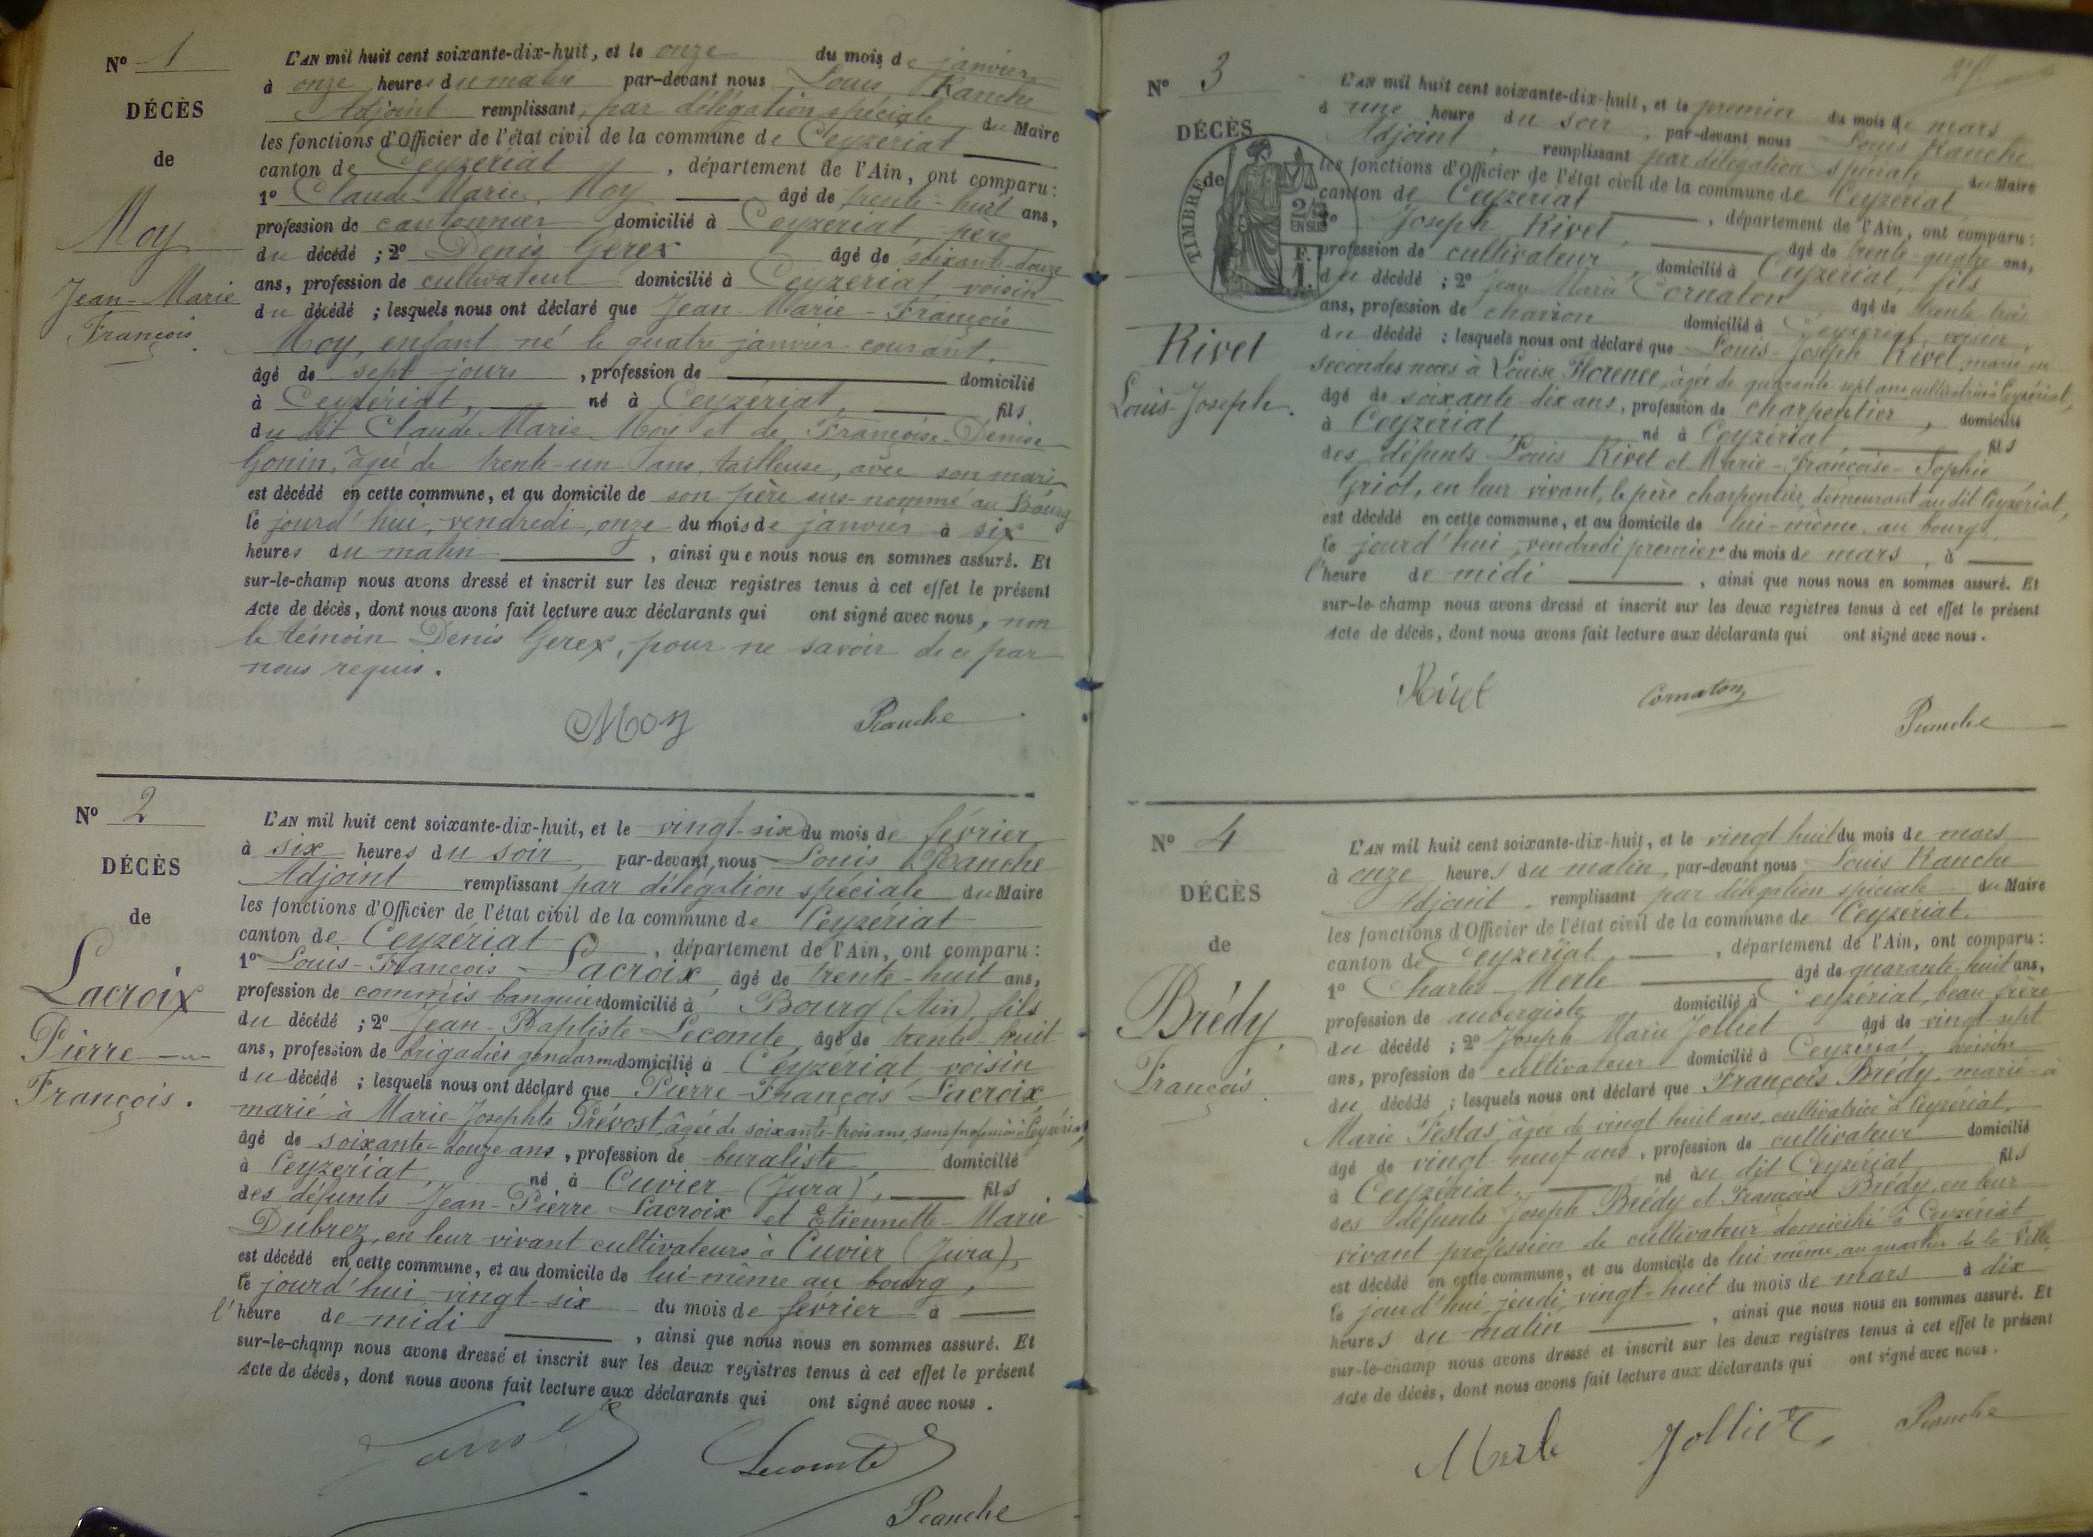 N° 1
DÉCÈS
de
Moy
Jean-Marie
François.
L'AN mil huit cent soixante-dix-huit, et le onze du mois de janvier
à onze heures du matin par-devant nous Louis Ranche
Adjoint remplissant, par délégation spéciale du Maire
les fonctions d'Officier de l'état civil de la commune de Ceyzériat
canton de Ceyzériat, département de l'Ain, ont comparu :
1° Claude-Marie Moy âgé de trente-huit ans,
profession de cantonnier domicilié à Ceyzériat, père
du décédé ; 2° Denis Gerex âgé de soixante-douze
ans, profession de cultivateur domicilié à Ceyzériat voisin
du décédé ; lesquels nous ont déclaré que Jean-Marie-François
Moy, enfant né le quatre janvier courant.
âgé de sept jours, profession de domicilié
à Ceyzériat, né à Ceyzériat, fils
du dit Claude Marie Moy et de Françoise-Denise
Gonin, âgée de trente-un ans, tailleuse, avec son mari
est décédé en cette commune, et au domicile de son père sus-nommé au Bourg
le jourd'hui, vendredi, onze du mois de janvier à six
heures du matin, ainsi que nous nous en sommes assuré. Et
sur-le-champ nous avons dressé et inscrit sur les deux registres tenus à cet effet le présent
Acte de décès, dont nous avons fait lecture aux déclarants qui ont signé avec nous, non
le témoin Denis Gerex, pour ne savoir de ce par
nous requis.
Moy Ranche
N° 2
DÉCÈS
de
Lacroix
Pierre
François.
L'AN mil huit cent soixante-dix-huit, et le vingt-six du mois de février
à six heures du soir par-devant nous Louis Ranche
Adjoint remplissant par délégation spéciale du Maire
les fonctions d'Officier de l'état civil de la commune de Ceyzériat
canton de Ceyzériat, département de l'Ain, ont comparu :
1° Louis-François Lacroix âgé de trente-huit ans,
profession de commis banquier domicilié à Bourg (Ain), fils
du décédé ; 2° Jean-Baptiste Lecomte, âgé de trente-huit
ans, profession de brigadier gendarme domicilié à Ceyzériat voisin
du décédé ; lesquels nous ont déclaré que Pierre-François Lacroix
marié à Marie-Josephte Prévost, âgée de soixante-trois ans, sans profession à Ceyzériat,
âgé de soixante-douze ans, profession de buraliste, domicilié
à Ceyzériat, né à Cuvier (Jura), fils
des défunts Jean-Pierre Lacroix et Etiennette-Marie
Dubrez, en leur vivant cultivateurs à Cuvier (Jura),
est décédé en cette commune, et au domicile de lui-même au bourg,
le jourd'hui vingt-six du mois de février à
l'heure de midi, ainsi que nous nous en sommes assuré. Et
sur-le-champ nous avons dressé et inscrit sur les deux registres tenus à cet effet le présent
Acte de décès, dont nous avons fait lecture aux déclarants qui ont signé avec nous.
Lecomte
Ranche
N° 3
DÉCÈS
de
TIMBRE
EN SUS
Rivet
Louis-Joseph.
L'AN mil huit cent soixante-dix-huit, et le premier du mois de mars
à une heure du soir, par-devant nous Louis Ranche
Adjoint, remplissant par délégation spéciale du Maire
les fonctions d'Officier de l'état civil de la commune de Ceyzériat
canton de Ceyzériat, département de l'Ain, ont comparu :
Joseph Rivet, âgé de trente-quatre ans,
profession de cultivateur, domicilié à Ceyzériat, fils
du décédé ; 2° Jean Marie Cornaton âgé de trente trois
ans, profession de charron domicilié à Ceyzériat voisin,
du décédé ; lesquels nous ont déclaré que Louis-Joseph Rivet, marié en
secondes noces à Louise Florence, âgée de quarante-sept ans cultivatrice à Ceyzériat,
âgé de soixante-dix ans, profession de charpentier, domicilié
à Ceyzériat, né à Ceyzériat, fils
des défunts Louis Rivet et Marie-Françoise-Sophie
Griot, en leur vivant, le père charpentier, demeurant au dit Ceyzériat,
est décédé en cette commune, et au domicile de lui-même, au bourg
le jourd'hui, vendredi premier du mois de mars, à
l'heure de midi, ainsi que nous nous en sommes assuré. Et
sur-le-champ nous avons dressé et inscrit sur les deux registres tenus à cet effet le présent
Acte de décès, dont nous avons fait lecture aux déclarants qui ont signé avec nous.
Rivet Cornaton
Ranche
N° 4
DÉCÈS
de
Brédy
François.
L'AN mil huit cent soixante-dix-huit, et le vingt huit du mois de mars
à onze heures du matin, par-devant nous Louis Ranche
Adjoint, remplissant par délégation spéciale du Maire
les fonctions d'Officier de l'état civil de la commune de Ceyzériat.
canton de Ceyzériat, département de l'Ain, ont comparu :
1° Charles Merle âgé de quarante-huit ans,
profession de aubergiste domicilié à Ceyzériat, beau frère
du décédé ; 2° Joseph Marie Jolliet âgé de vingt-sept
ans, profession de cultivateur domicilié à Ceyzériat, voisin
du décédé ; lesquels nous ont déclaré que François Brédy, marié à
Marie Festas âgée de vingt huit ans, cultivatrice à Ceyzériat,
âgé de vingt-neuf ans, profession de cultivateur domicilié
à Ceyzériat, né au dit Ceyzériat fils
des défunts Joseph Brédy et Françoise Brédy, en leur
vivant profession de cultivateur domicilié à Ceyzériat
est décédé en cette commune, et au domicile de lui-même, au quartier de la Ville
le jourd'hui, jeudi, vingt-huit du mois de mars à dix
heures du matin, ainsi que nous nous en sommes assuré. Et
sur-le-champ nous avons dressé et inscrit sur les deux registres tenus à cet effet le présent
Acte de décès, dont nous avons fait lecture aux déclarants qui ont signé avec nous.
Merle Jolliet Ranche